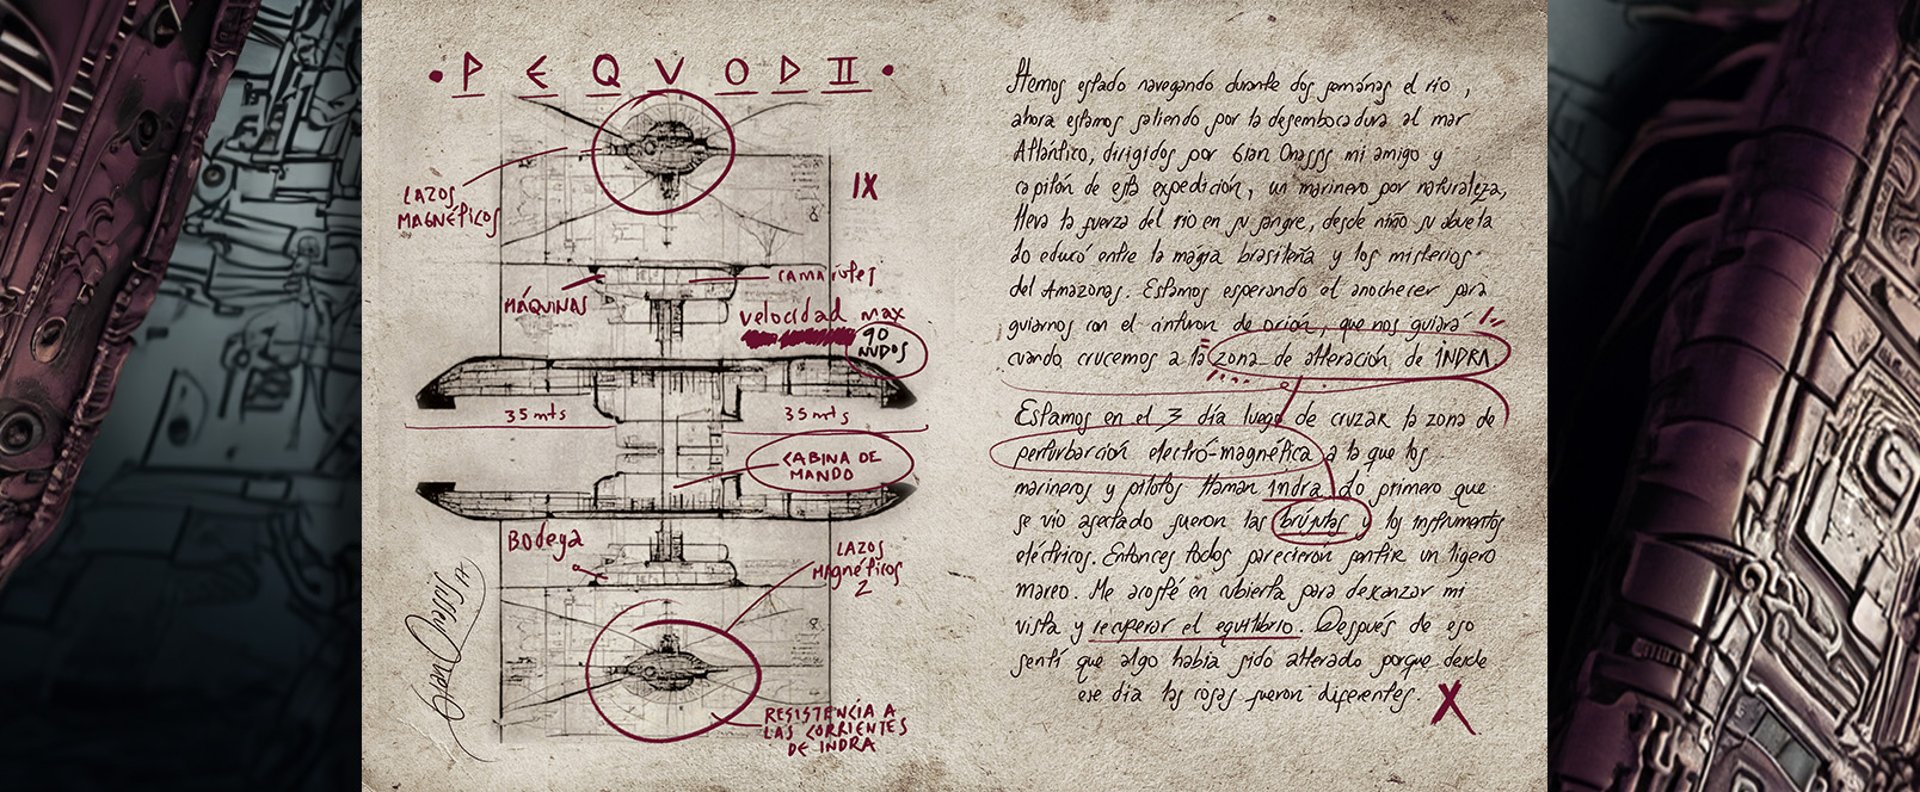 • P E Q V O D II •
LAZOS
MAGNÉTICOS
IX
CAMAROTES
MÁQUINAS
velocidad max
90
NUDOS
35 mts
35 mts
CABINA DE
MANDO
Bodega
LAZOS
MAGNÉTICOS
2
Gian Onassis
RESISTENCIA A
LAS CORRIENTES
DE INDRA
Hemos estado navegando durante dos semanas el río,
ahora estamos saliendo por la desembocadura al mar
Atlántico, dirigidos por Gian Onassis mi amigo y
capitán de esta expedición, un marinero por naturaleza,
lleva la fuerza del río en su sangre, desde niño su abuela
lo educó entre la magia brasileña y los misterios
del Amazonas. Estamos esperando el anochecer para
guiarnos con el cinturon de orión, que nos guiará
cuando crucemos a la zona de alteración de INDRA
Estamos en el 3 día luego de cruzar la zona de
perturbarción electró-magnética a la que los
marineros y pilotos llaman indra lo primero que
se vio afectado fueron las brújulas y los instrumentos
eléctricos. Entonces todos parecieron sentir un ligero
mareo. Me acosté en cubierta para descanzar mi
vista y recuperar el equilibrio. Después de eso
sentí que algo habia sido alterado porque desde
ese dia las cosas fueron diferentes.
X